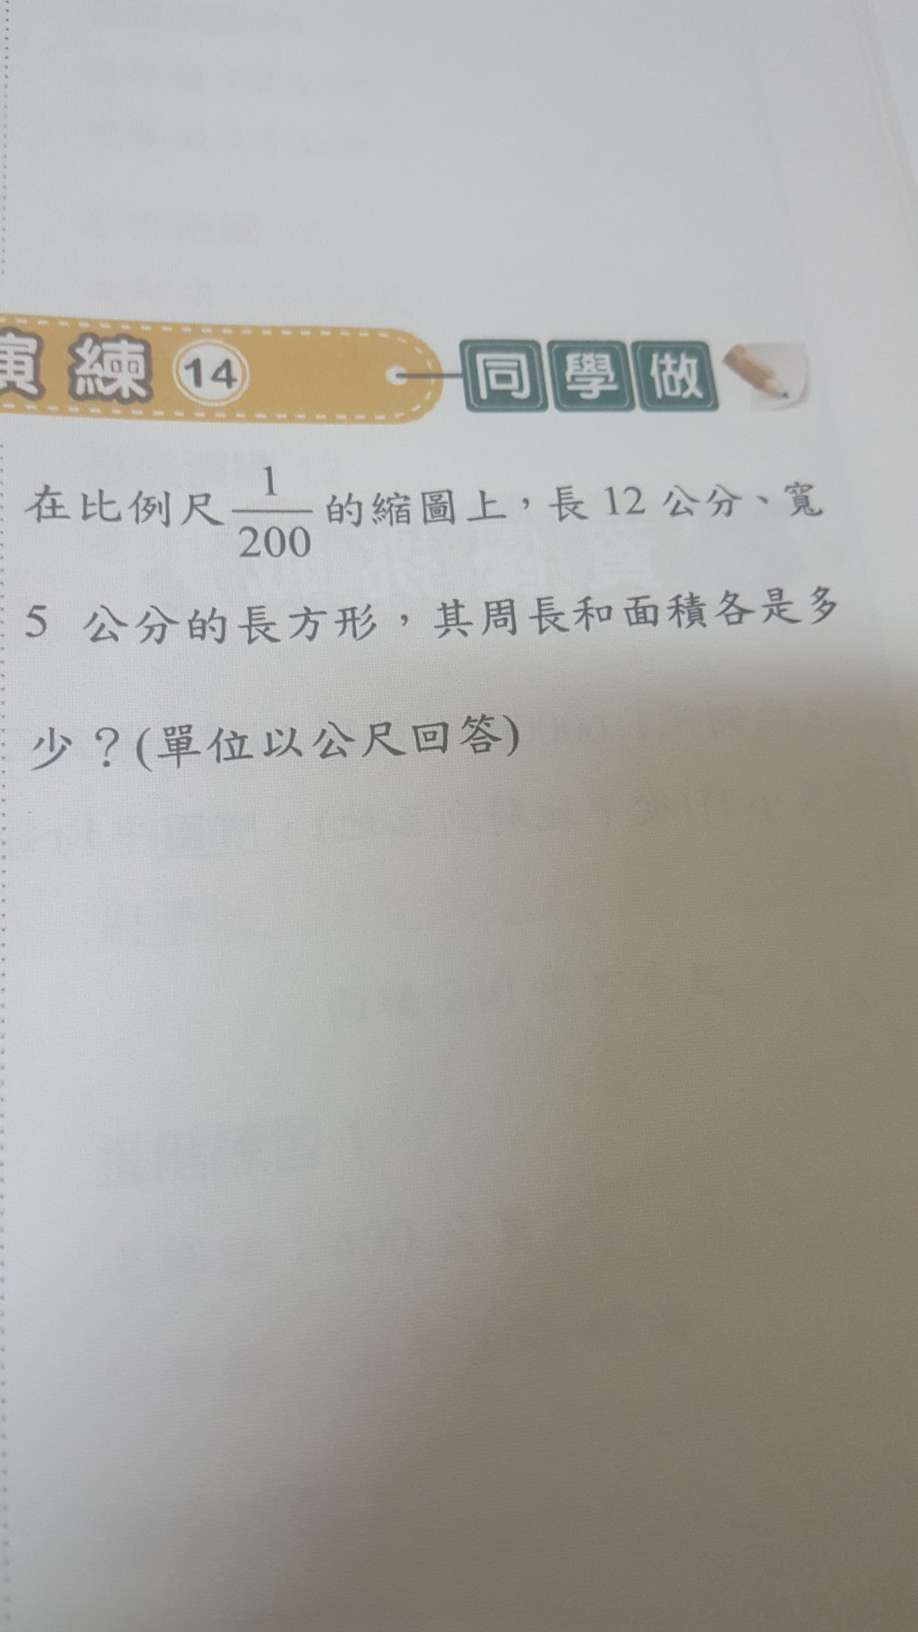 演練 14 同學做
在比例尺 1/200 的縮圖上，長 12 公分、寬
5 公分的長方形，其周長和面積各是多
少？(單位以公尺回答)